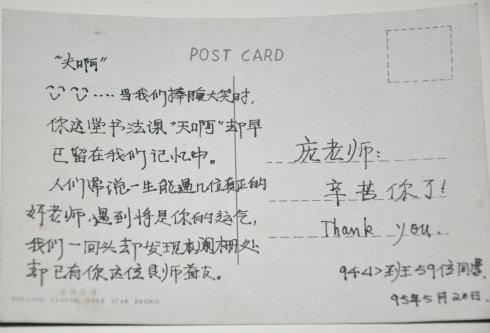 POST CARD
"天啊"
……当我们捧腹大笑时,
你这堂书法课"天啊"却早
已留在我们记忆中。
人们常说一生能遇几位真正的
好老师,遇到将是你的运气,
我们一回头却发现阑栅处
却已有你这位良师益友。
ROLLING CLOUDS OVER STAR BRIDGE
庞老师:
辛苦你了!
Thank you.
94<1>班全59位同学.
95年5月20日.